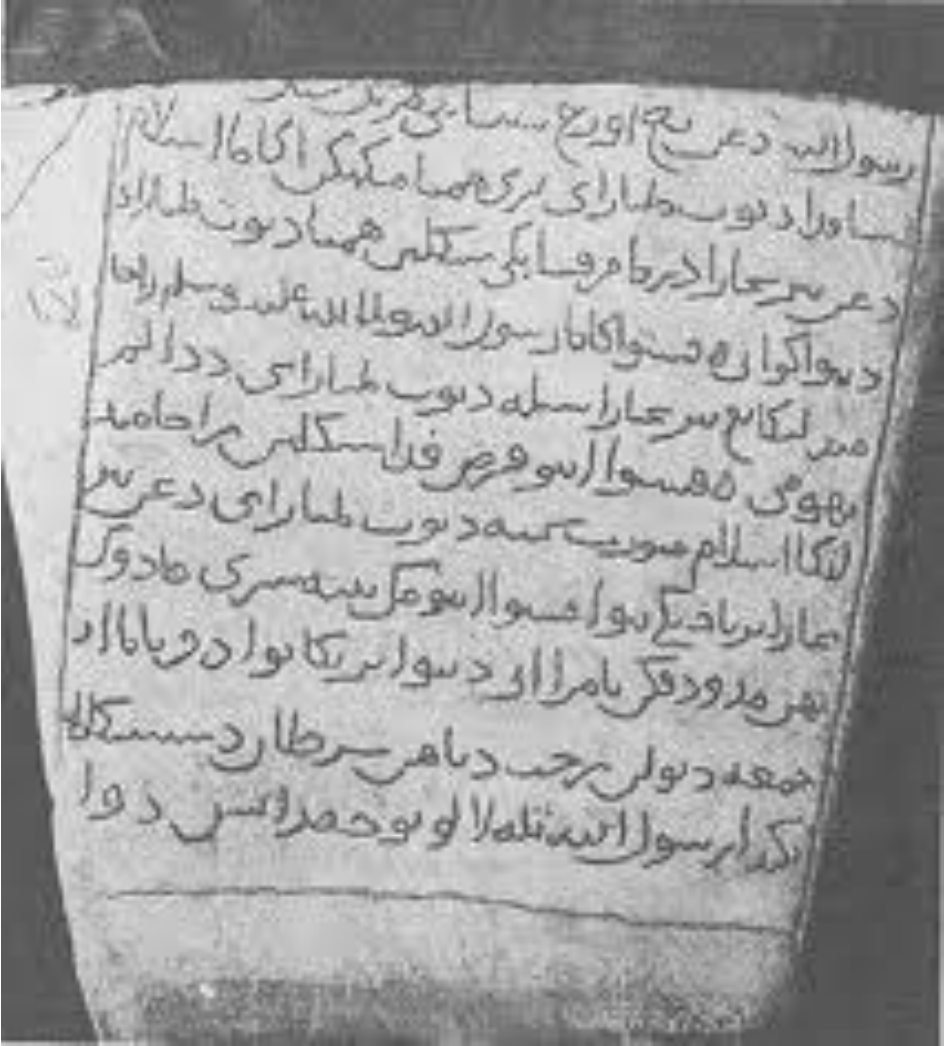 رسول الله دعن يع اورع
اسا ڤد دبوت ملياراي بري همبا منكهكن اكام اسلام
دعن بنر بچارا درما مر بكي سكلين همبا دبوت ملياراي
دبنواكو ان فنتوا اكام رسول الله صلى الله عليه وسلم راجا
مندلكا يع بنر بچارا سبله دبوت ملياراي ددالم
بهومي فنتوا ايتو فرض فد سكلين راجا مند
لكا اسلام منورت ستيته دبوت ملياراي دعن بنر
بچارا بربجيكي بنوا فنتوا ايتو مك تيته سري فادوك
توهن مدودقكن تامرا اين دبنوا ترعكانو ادفرتام اد
جمعة دبولن رجب دتاهن سرطان دسسنكالا
بكندا رسول الله تله لالو توجه راتس دوا